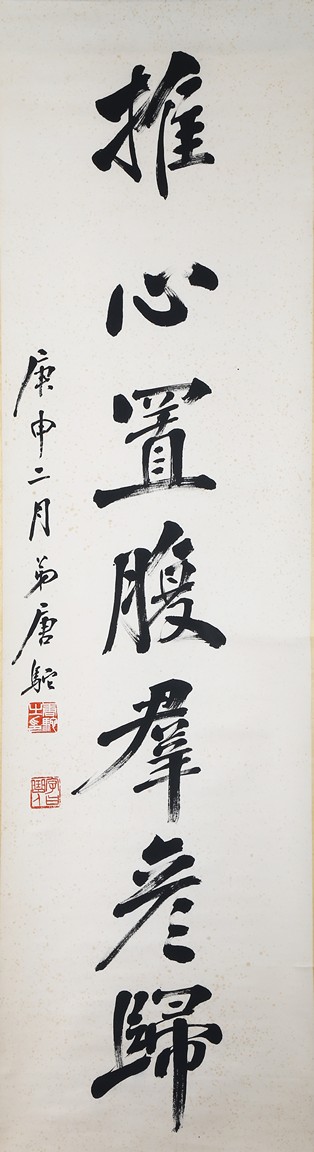 推心置腹羣彦歸
庚申二月弟唐駝